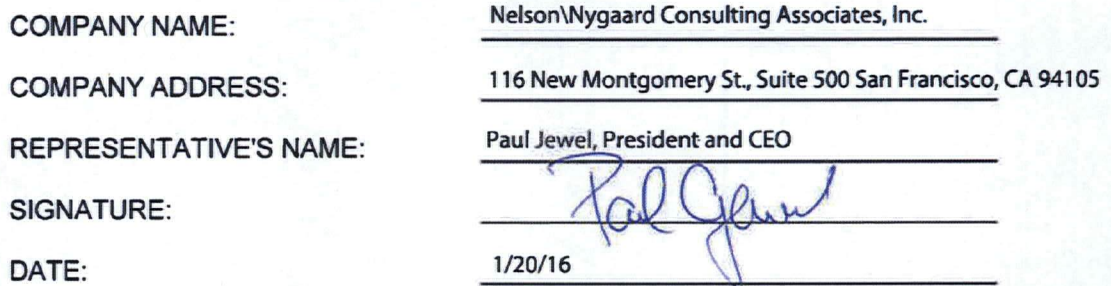 COMPANY NAME: Nelson\Nygaard Consulting Associates, Inc.
COMPANY ADDRESS: 116 New Montgomery St., Suite 500 San Francisco, CA 94105
REPRESENTATIVE'S NAME: Paul Jewel, President and CEO
SIGNATURE: Paul Jewel
DATE: 1/20/16